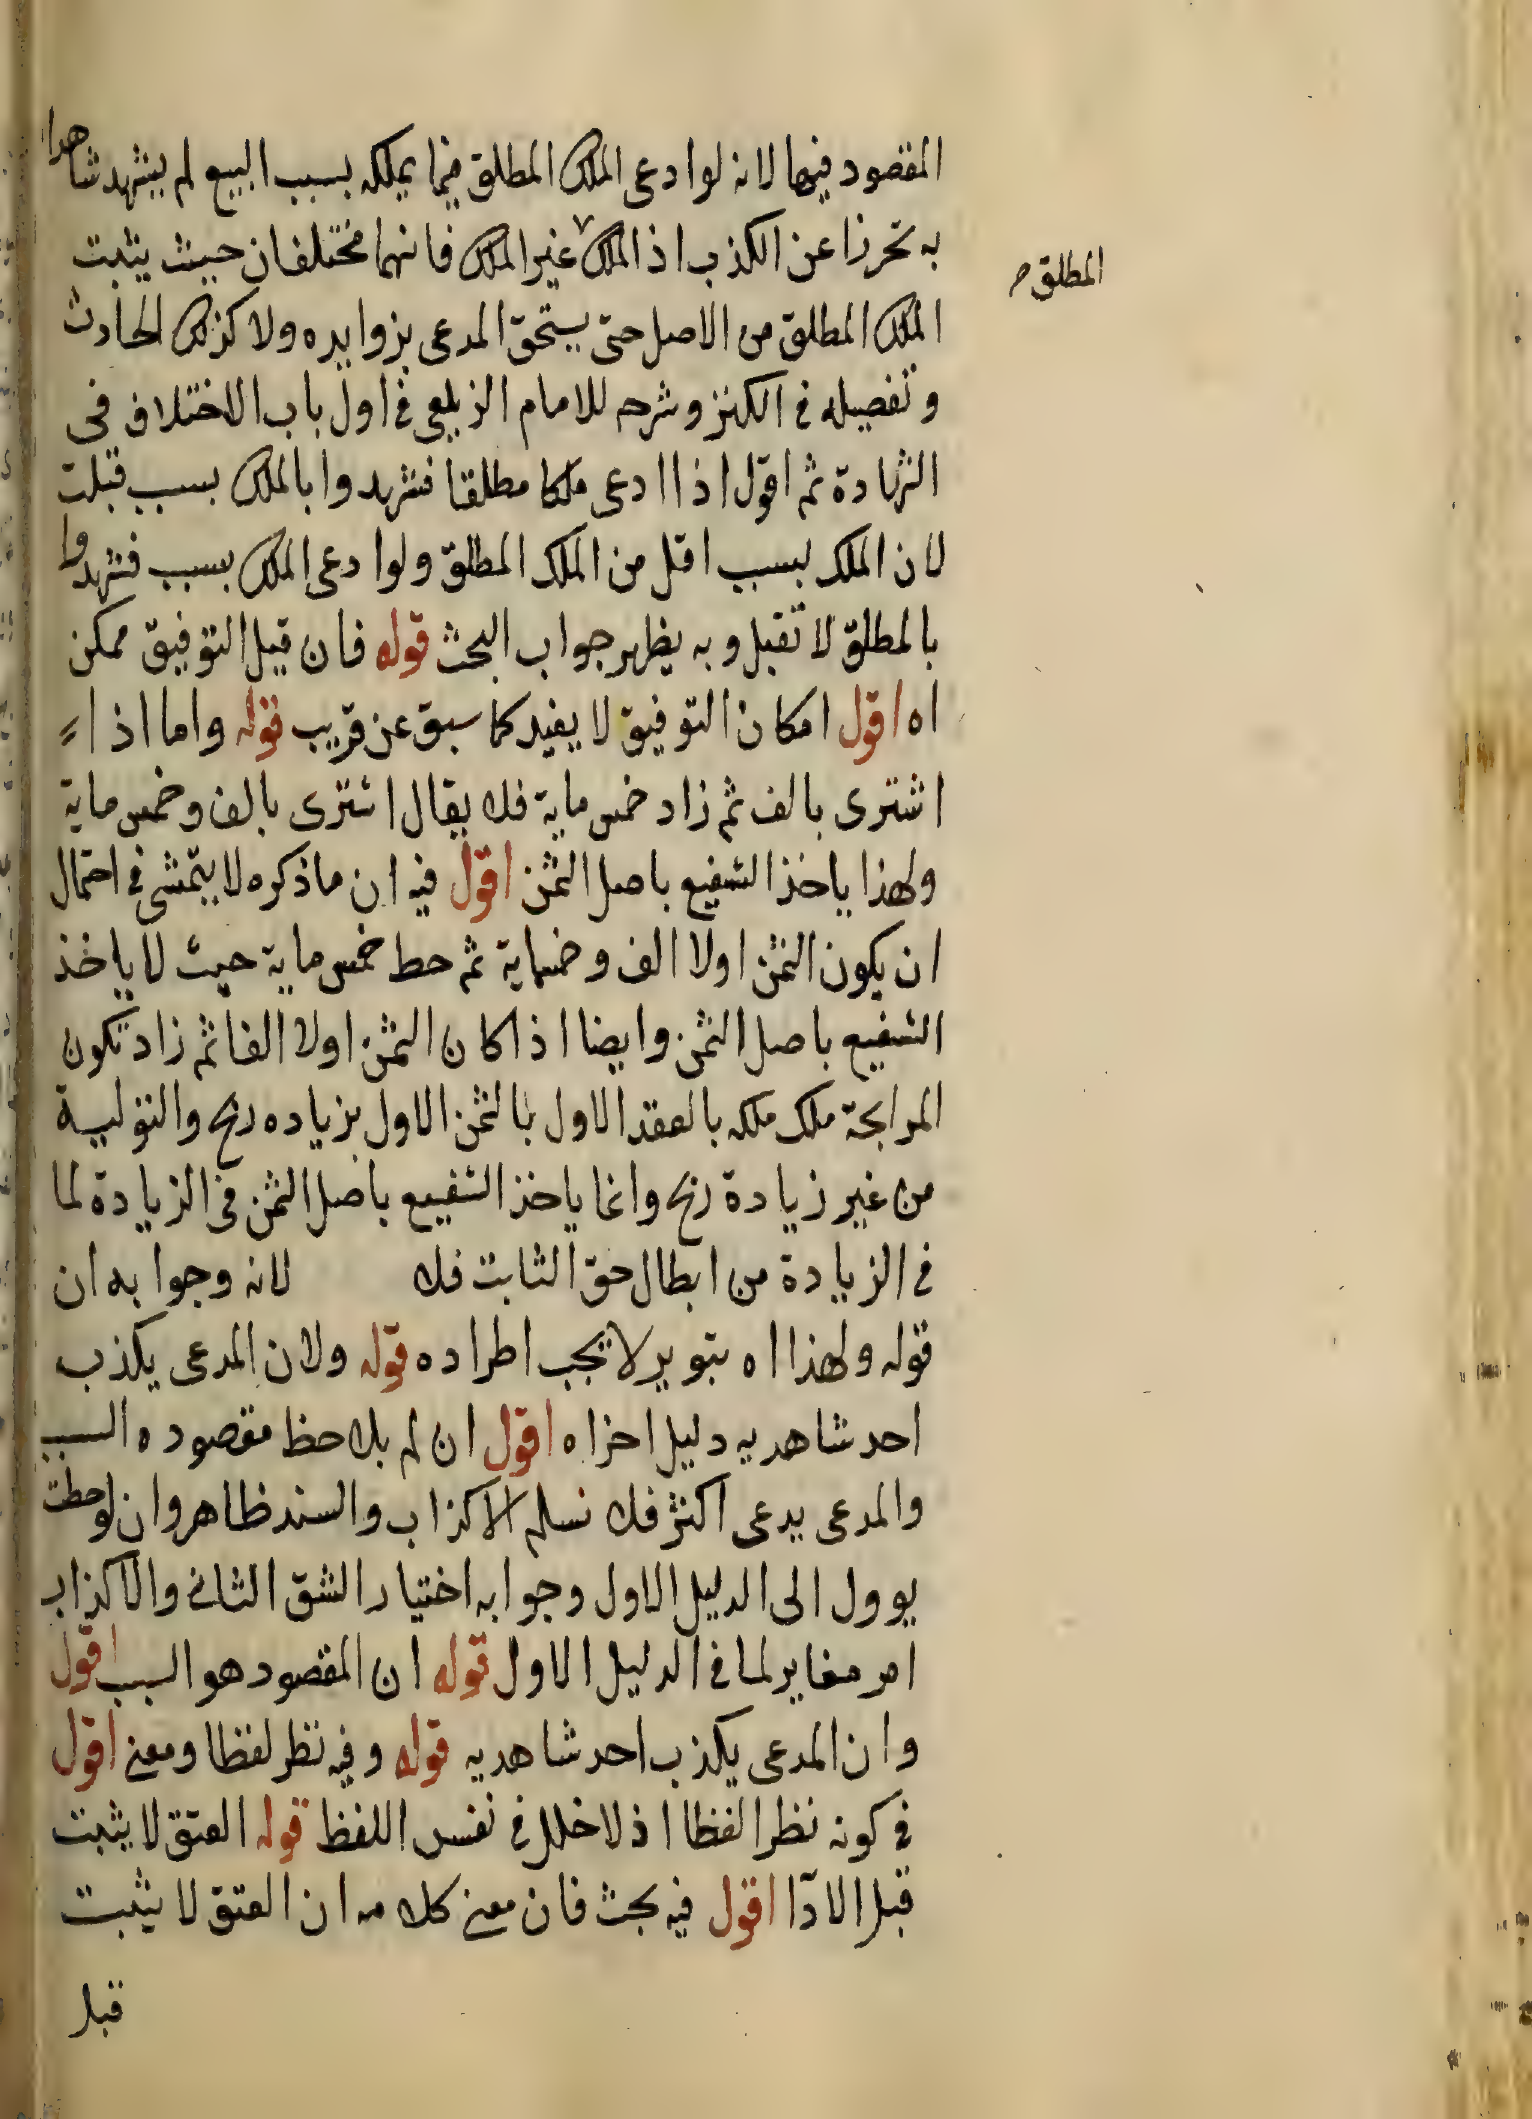 المقصود فيها لانه لو ادعى الملك المطلق فيما يملكه بسبب البيع لم يشهد شاهدا
به تحرزا عن الكذب اذ الملك غير الملك فانهما مختلفان حيث يثبت
المطلق
الملك المطلق من الاصل حتى يستحق المدعى بزوايده ولا كذلك الحادث
وتفصيله فى الكنز وشرحه للامام الزيلعى فى اول باب الاختلاف فى
الشهادة ثم اقول اذا ادعى ملكا مطلقا فشهدوا بالملك بسبب قبلت
لان الملك بسبب اقل من الملك المطلق ولو ادعى الملك بسبب فشهدوا
بالمطلق لا تقبل وبه يظهر جواب البحث قوله فان قيل التوفيق ممكن
اه اقول امكان التوفيق لا يفيد كما سبق عن قريب قوله واما اذا
اشترى بالف ثم زاد خمس ماية فلا يقال اشترى بالف وخمس ماية
ولهذا ياخذ الشفيع باصل الثمن اقول فيه ان ما ذكره لا يتمشى فى احتمال
ان يكون الثمن اولا الف وخمماية ثم حط خمس ماية حيث لا ياخذ
الشفيع باصل الثمن وايضا اذا كان الثمن اولا الفا ثم زاد تكون
المرابحة ملك ملكه بالعقد الاول بالثمن الاول بزياده ربح والتولية
من غير زيادة ربح وانما ياخذ الشفيع باصل الثمن فى الزيادة لما
فى الزيادة من ابطال حق الثابت فلا لانه وجوابه ان
قوله ولهذا اه تنوير لا يجب اطراده قوله ولان المدعى يكذب
احد شاهديه دليل اخر اه اقول ان لم يلاحظ مقصوده السبب
والمدعى يدعى اكثر فلا نسلم الاكذاب والسند ظاهر وان لوحظت
يوول الى الدليل الاول وجوابه اختيار الشق الثانى والاكذاب
امر مغاير لما فى الدليل الاول قوله ان المقصود هو السبب اقول
وان المدعى يكذب احد شاهديه قوله وفيه نظر لفظا ومعنى اقول
فى كونه نظرا لفظا اذ لا خلل فى نفس اللفظ قوله العتق لا يثبت
قبل الادآ اقول فيه بحث فان معنى كلامه ان العتق لا يثبت
قبل